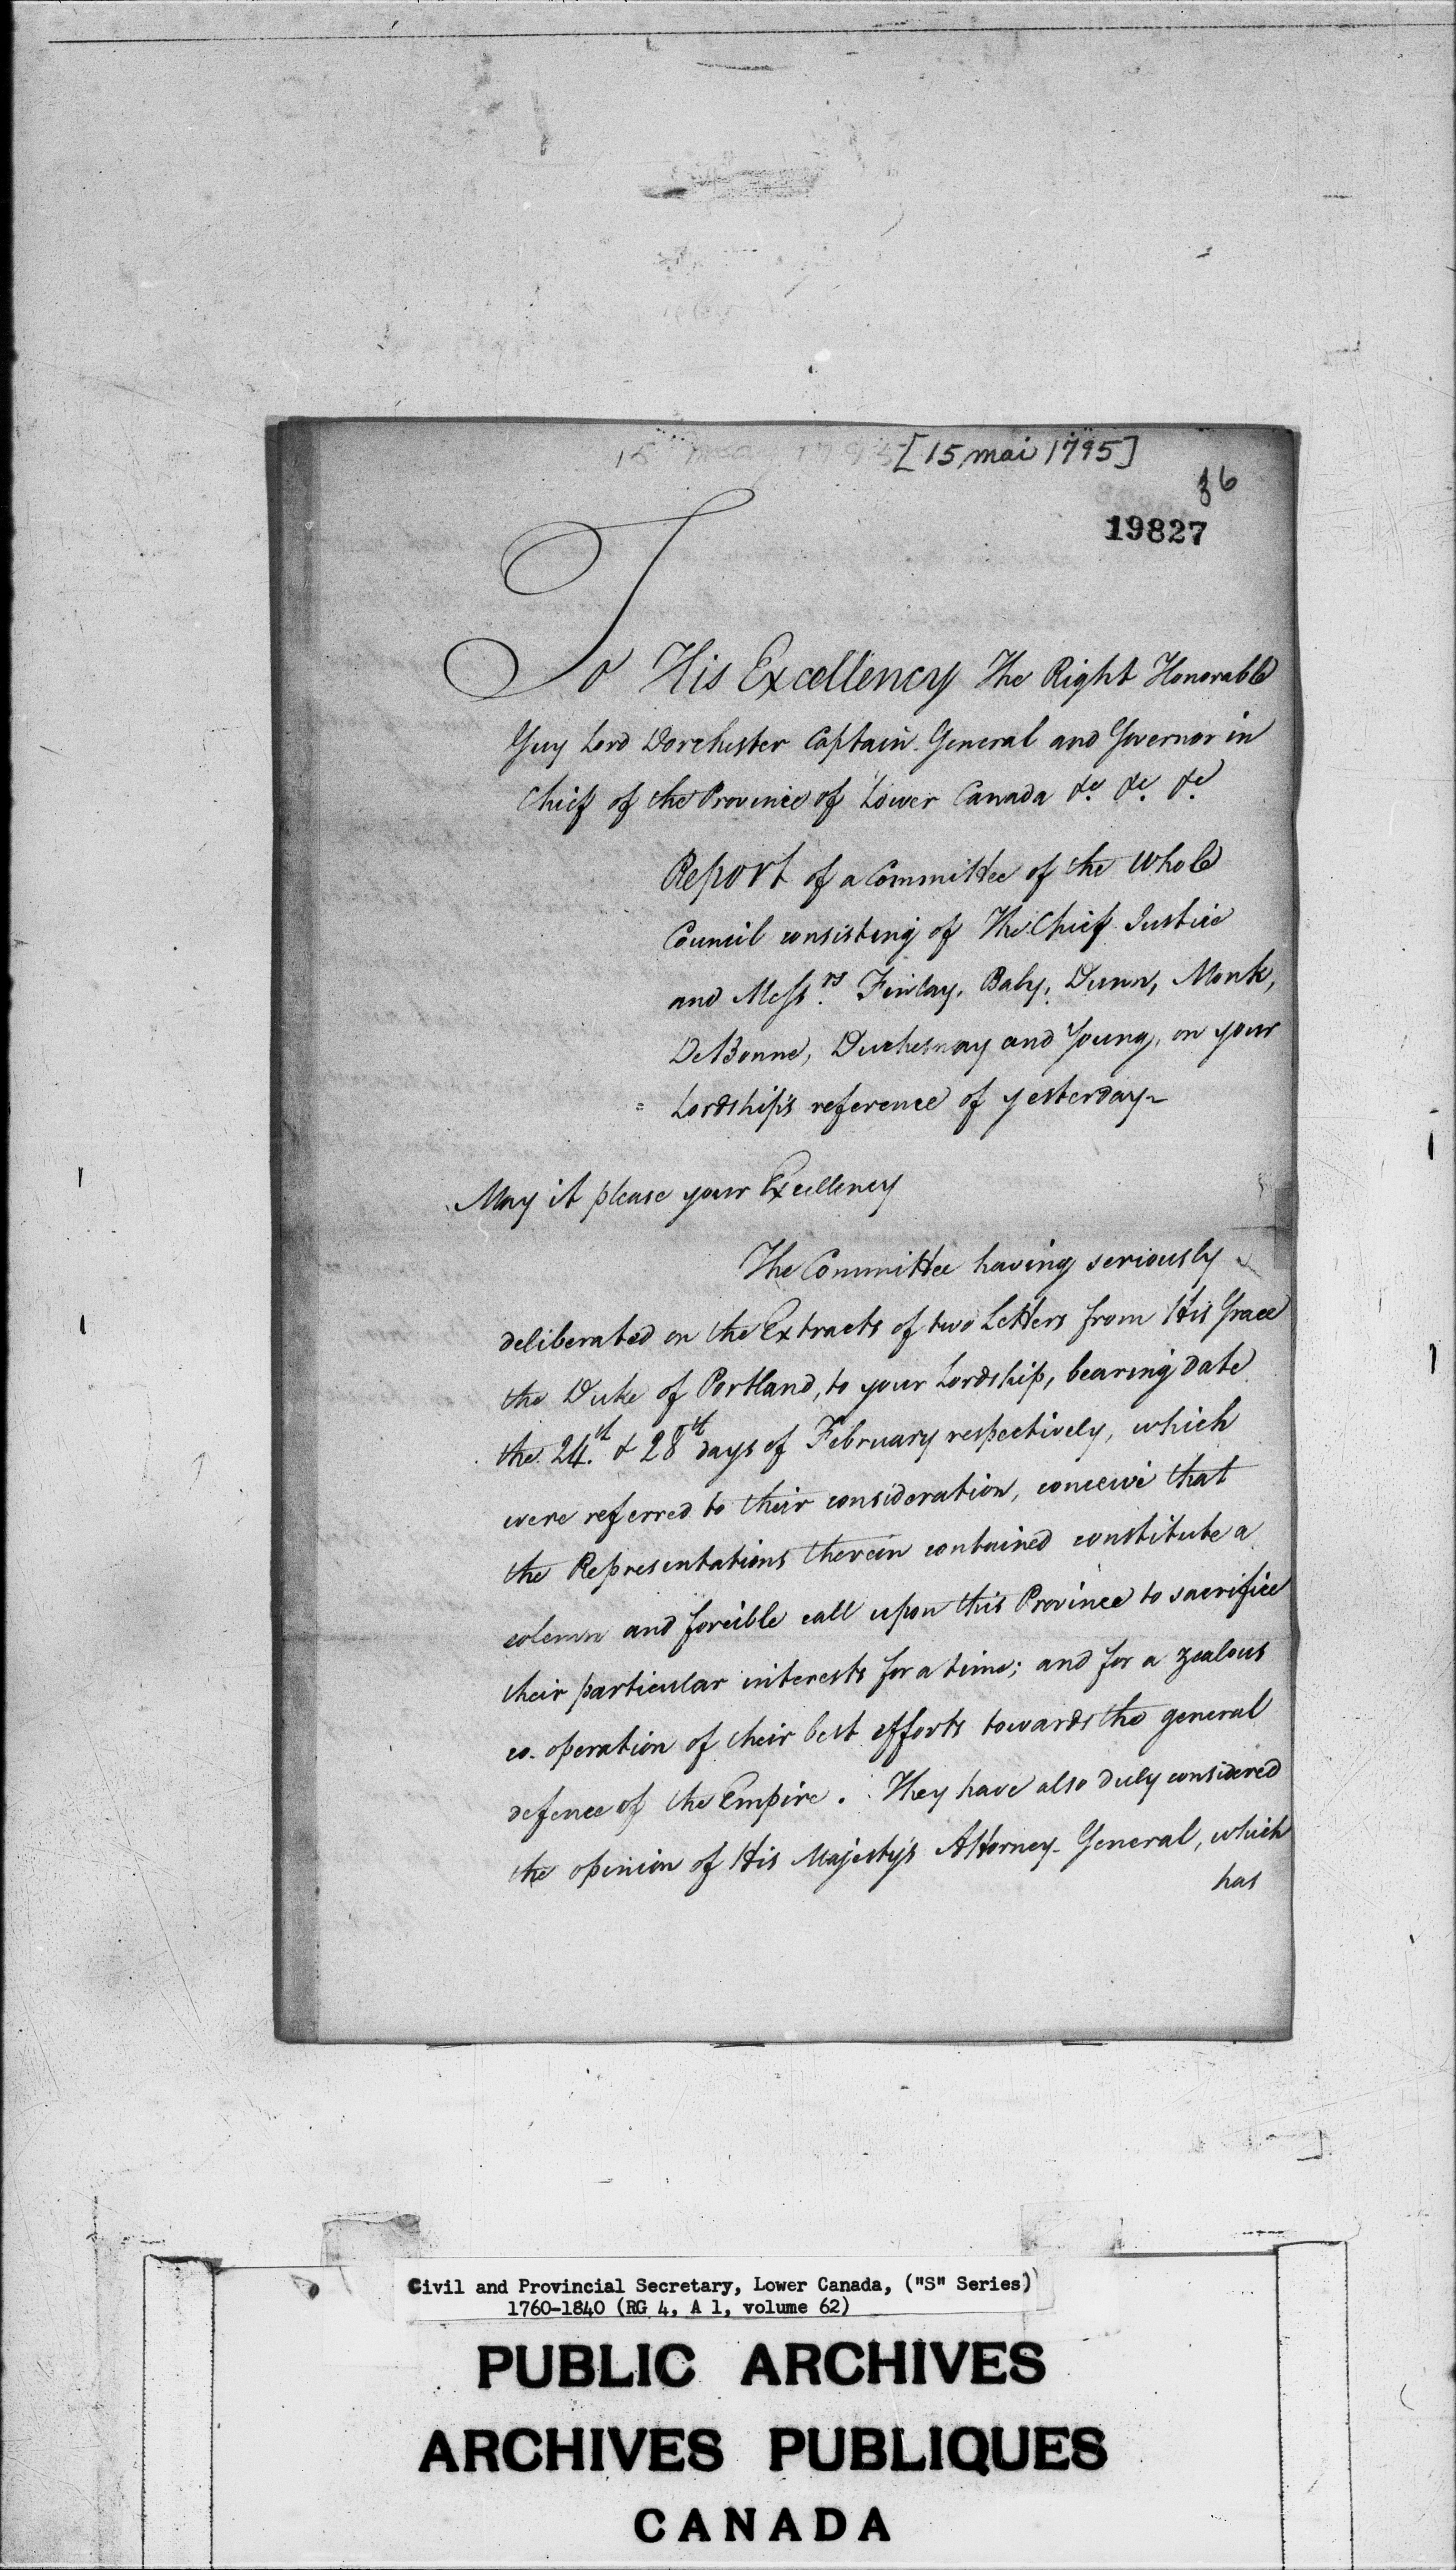 15 may 1795 [15 mai 1795]
36
19827
To His Excellency The Right Honorable
Guy Lord Dorchester Captain General and Governor in
Chief of the Province of Lower Canada &c. &c. &c.
Report of a Committee of the Whole
Council consisting of The Chief Justice
and Messrs. Finlay, Baby, Dunn, Monk,
DeBonne, Duchesnay and Young, on your
Lordship's reference of yesterday -
May it please your Excellency
The Committee having seriously
deliberated on the Extracts of two Letters from His Grace
the Duke of Portland, to your Lordship, bearing date
the 24.th & 28th days of February respectively, which
were referred to their consideration, conceive that
the Representations therein contained constitute a
solemn and forcible call upon this Province to sacrifice
their particular interests for a time; and for a zealous
co-operation of their best efforts towards the general
defence of the Empire. They have also duly considered
the opinion of His Majesty's Attorney-General, which
has
Civil and Provincial Secretary, Lower Canada, ("S" Series)
1760-1840 (RG 4, A 1, volume 62)
PUBLIC ARCHIVES
ARCHIVES PUBLIQUES
CANADA